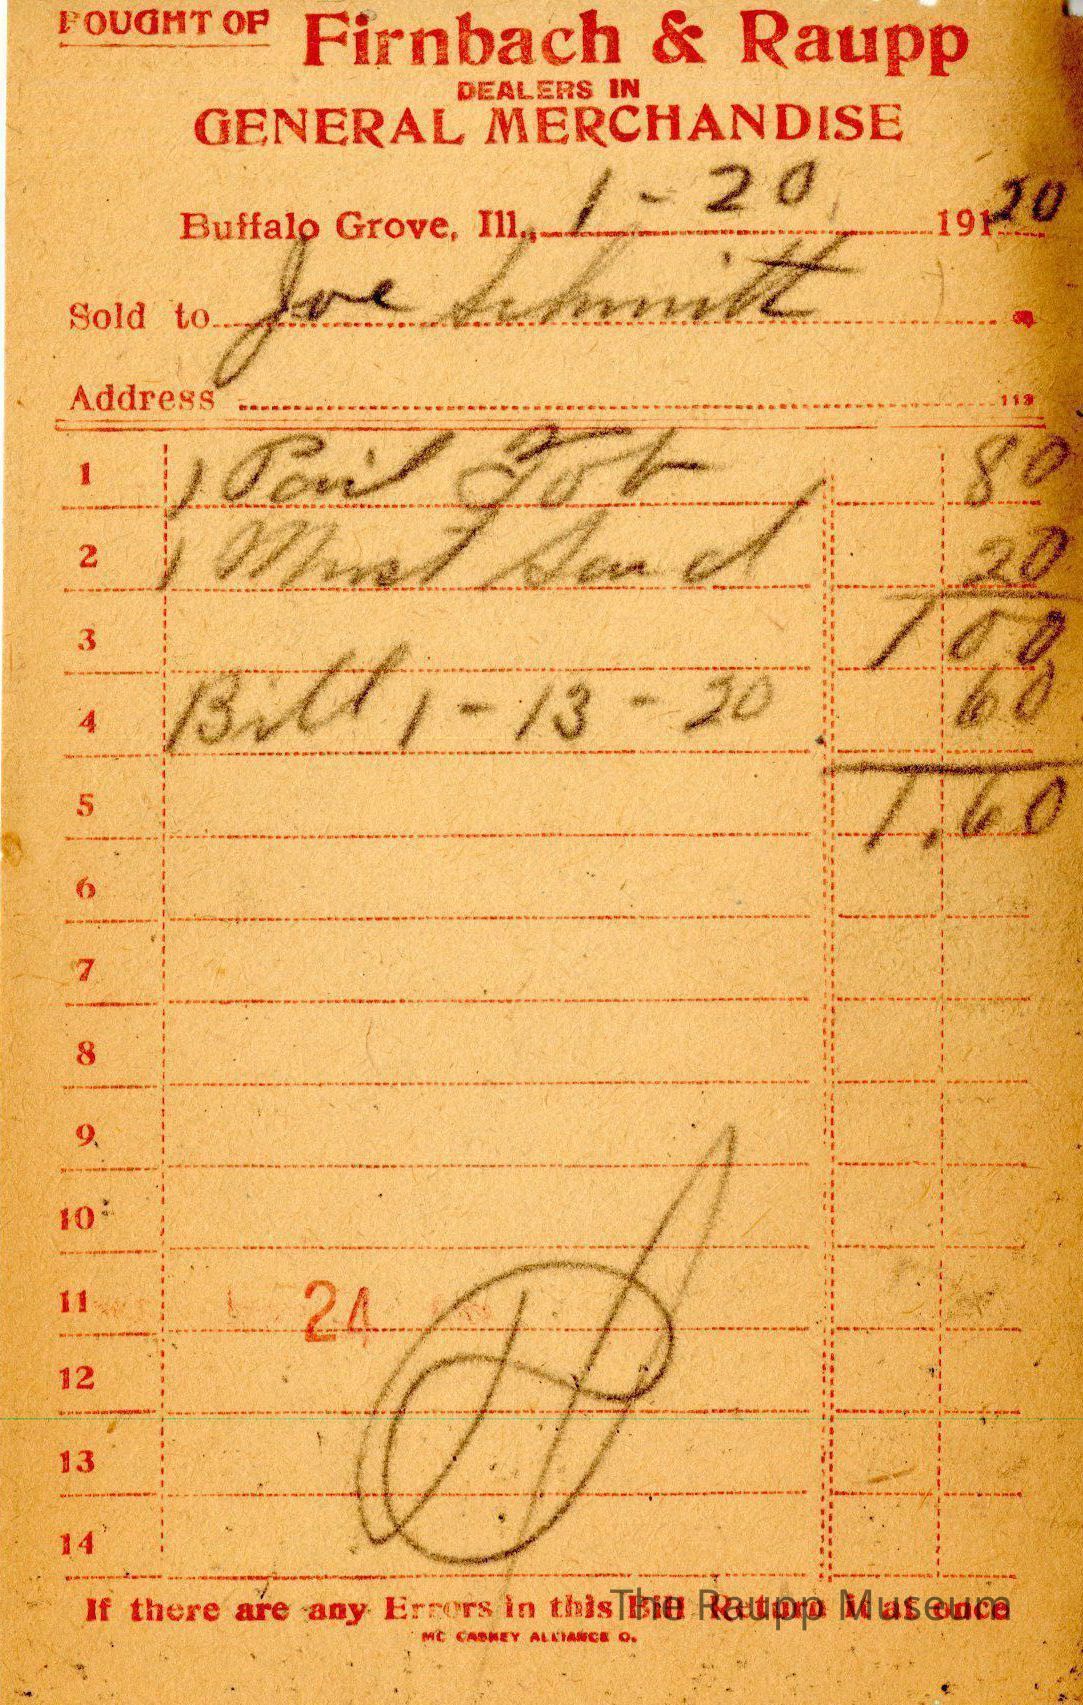 BOUGHT OF Firnbach & Raupp
DEALERS IN
GENERAL MERCHANDISE
Buffalo Grove, Ill., 1-20 191 20
Sold to Joe Schmitt
Address 113
1 1 Pail Tob 80
2 1 Must Sard 20
3 1 00
4 Bill 1-13-20 60
5 1.60
6
7
8
9
10
11 24
12
13
14
If there are any Errors in this Bill Return it at once
The Raupp Museum
MC CASKEY ALLIANCE O.